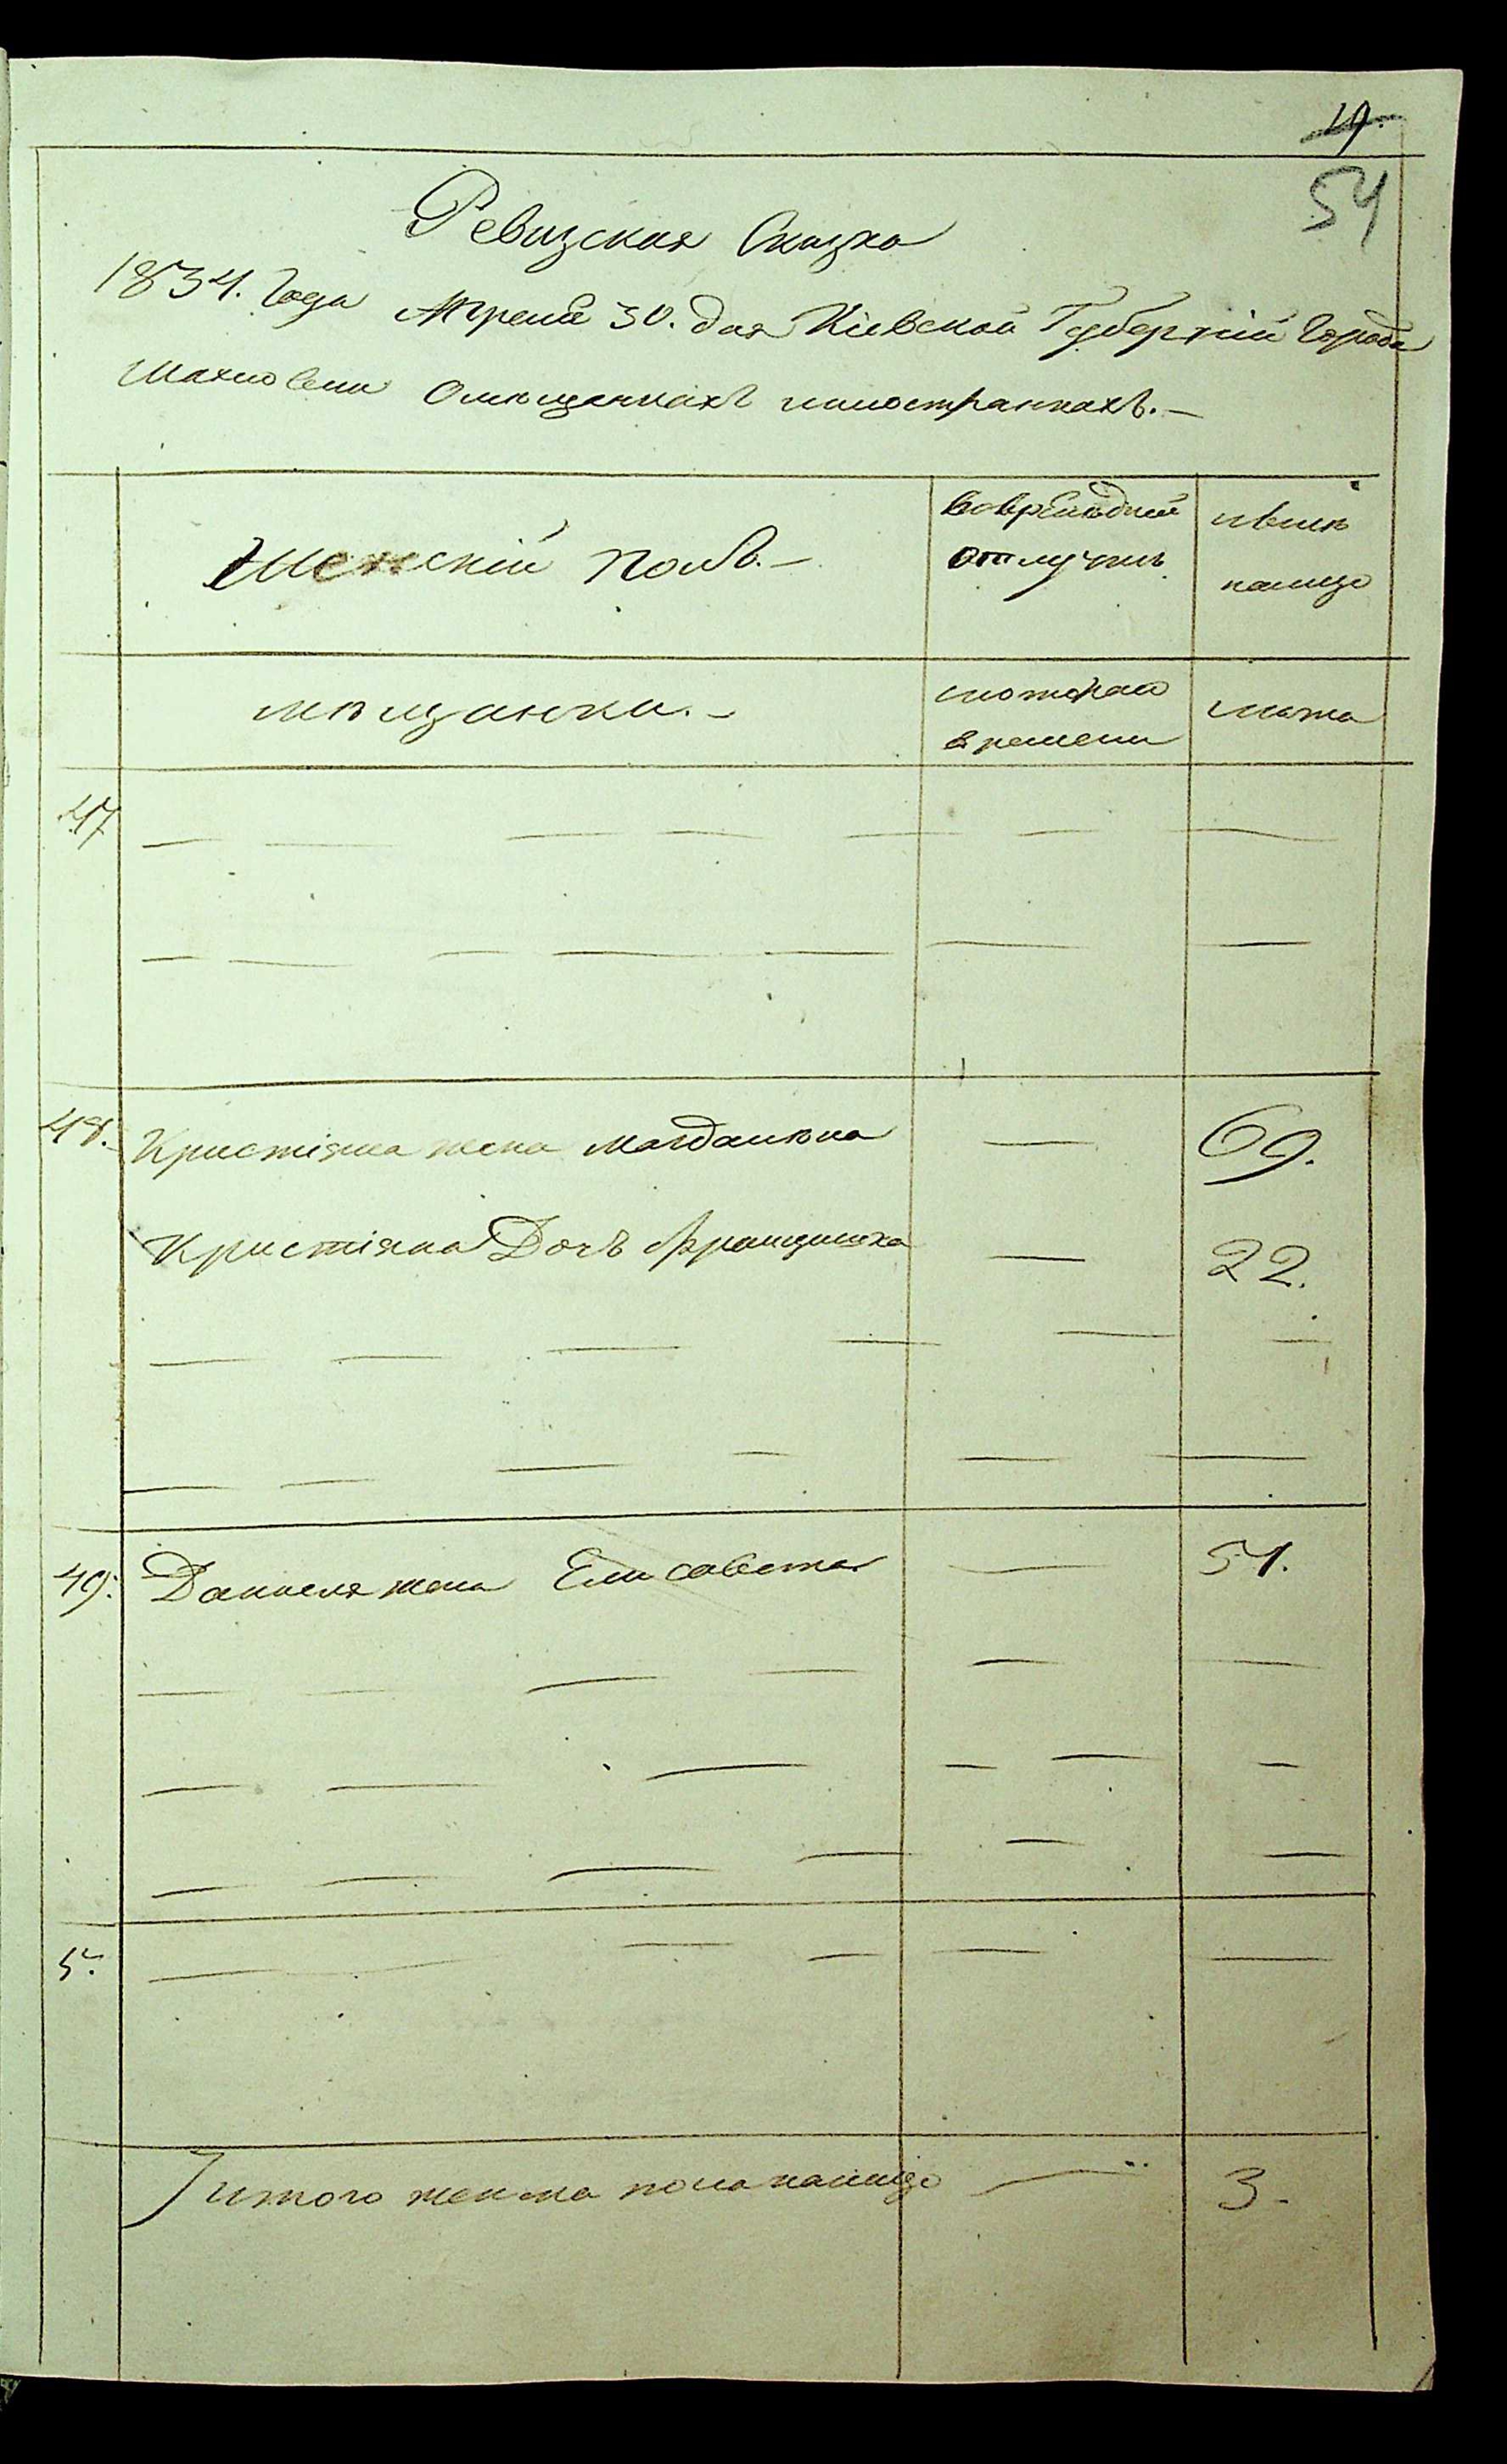 19.
54
Ревизская Сказка
1834. Года Апреля 30. дня Кіевской Губерніи Города
Махновки Омещанкахъ иностранкахъ. —
Женскій полъ. —
вовременной отлучкѣ
нынѣ налицо
мѣщанки. —
скотораго времени
лѣта
47
48. Кристіяна жена Магдалѣна — 69.
Кристіяна Дочь Францишка — 22.
49. Даниеля жена Елисавета — 51.
Итого женска пола налицо — 3.